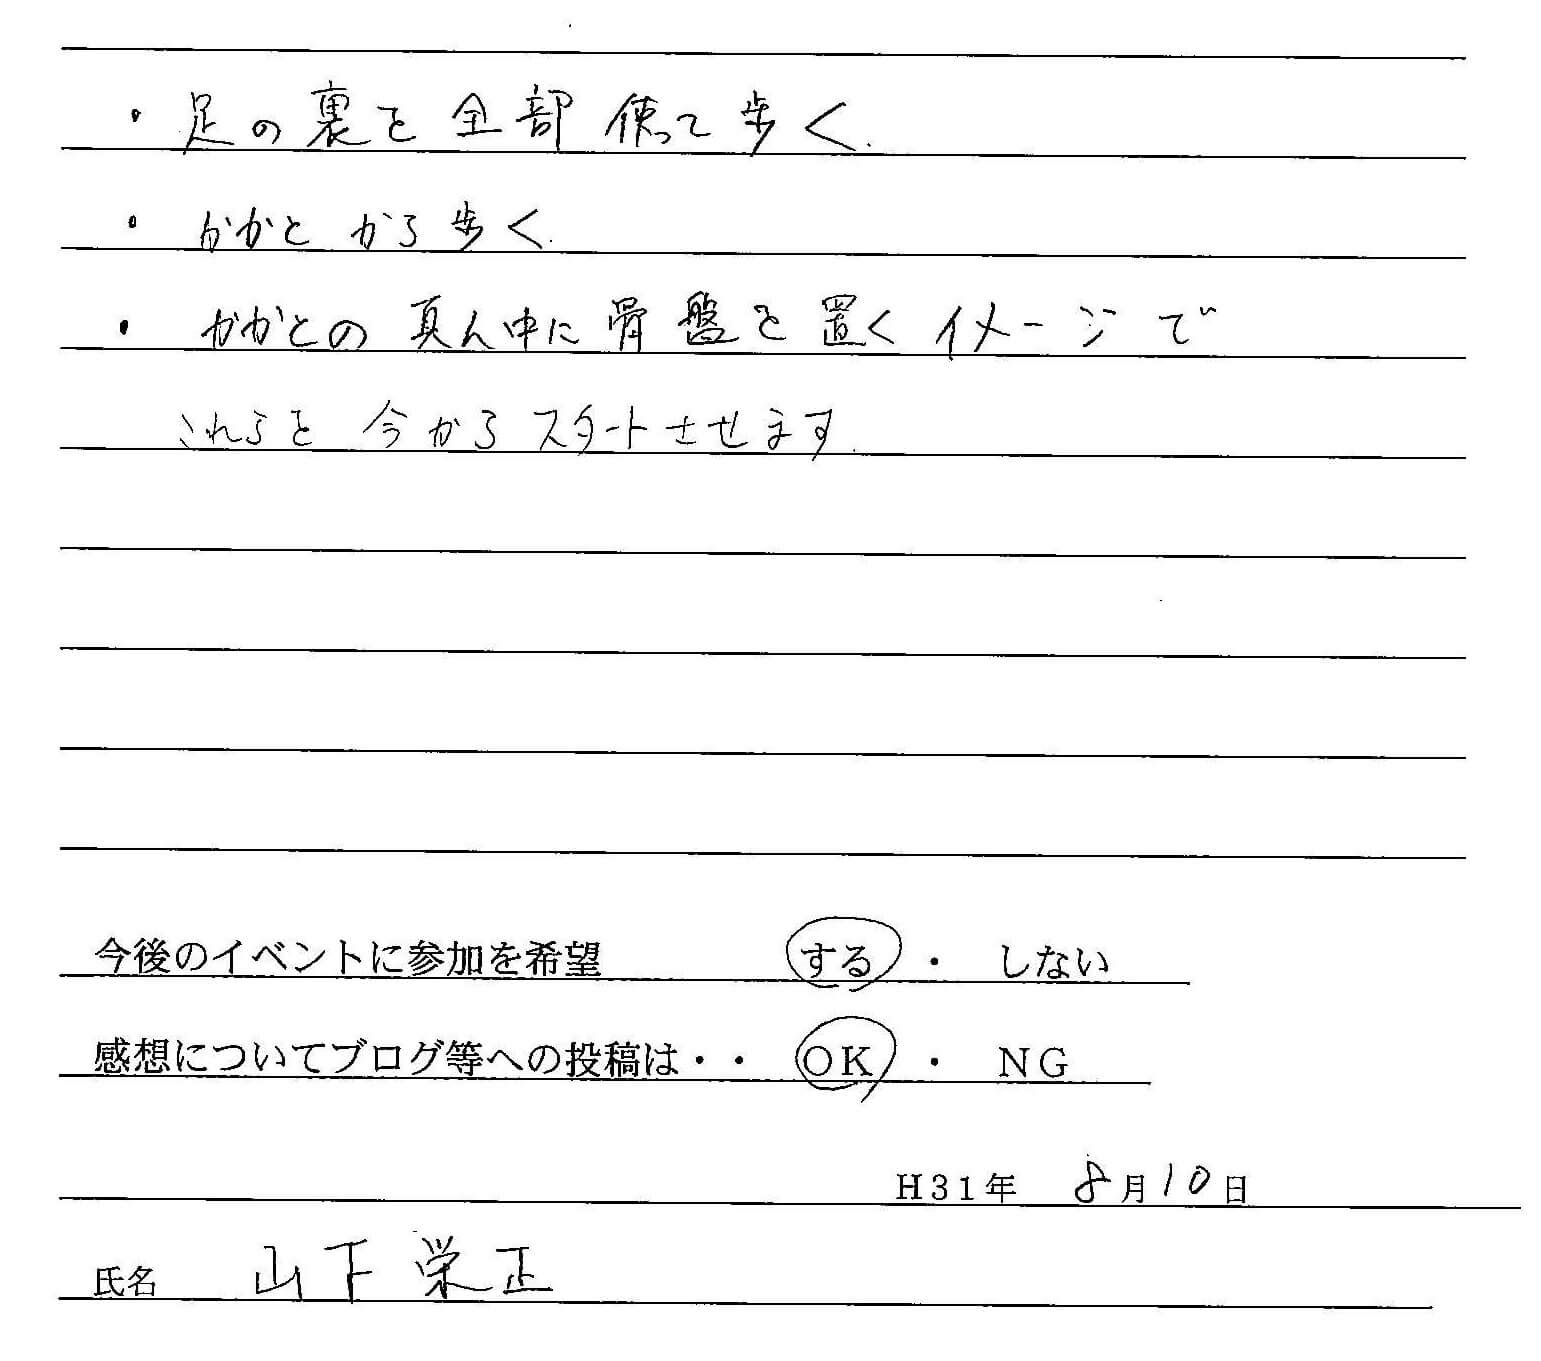 ・足の裏を全部使って歩く.
・かかとから歩く.
・かかとの真ん中に骨盤を置くイメージで
これらを今からスタートさせます.
今後のイベントに参加を希望 する ・ しない
感想についてブログ等への投稿は・・ OK ・ NG
H31年 8月10日
氏名 山下 栄正